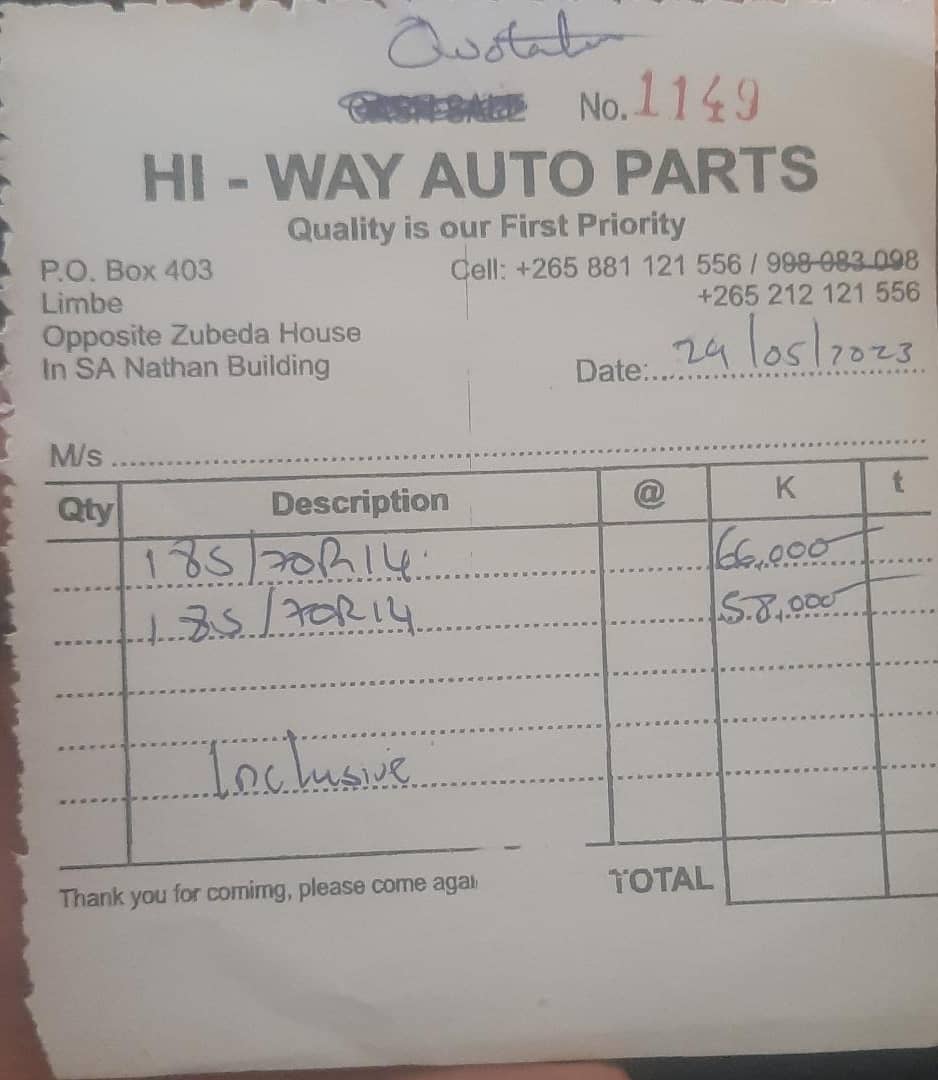 Quotation
CASH SALE No. 1149
HI - WAY AUTO PARTS
Quality is our First Priority
P.O. Box 403
Limbe
Opposite Zubeda House
In SA Nathan Building
Cell: +265 881 121 556 / 998 083 098
+265 212 121 556
Date: 29/05/2023
M/s
Qty Description @ K t
185/70R14 66,000
185/70R14 58,000
Inclusive
TOTAL
Thank you for comimg, please come agai